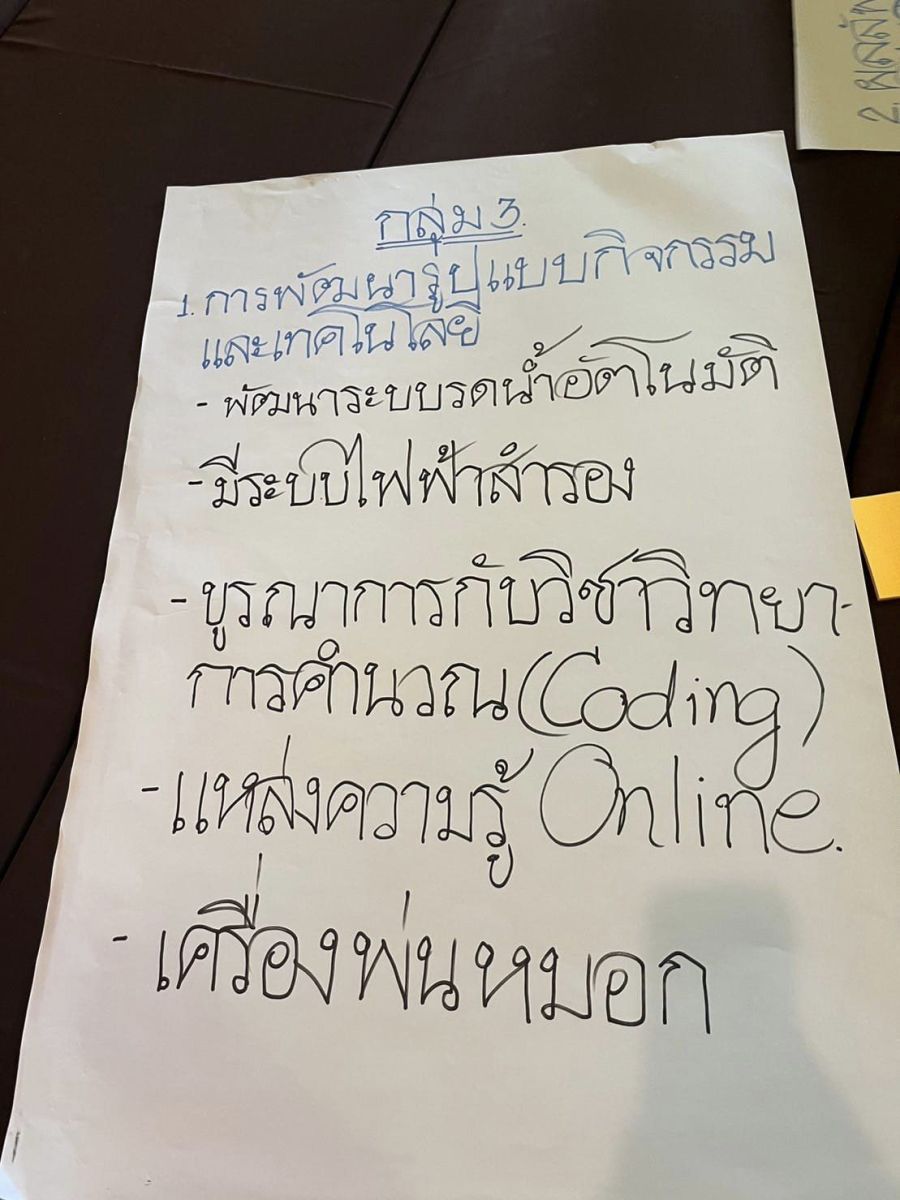 กลุ่ม 3.
1. การพัฒนารูปแบบกิจกรรม
และเทคโนโลยี
- พัฒนาระบบรดน้ำอัตโนมัติ
- มีระบบไฟฟ้าสำรอง
- บูรณาการกับวิชาวิทยา-
การคำนวณ (Coding)
- แหล่งความรู้ Online.
- เครื่องพ่นหมอก
2.